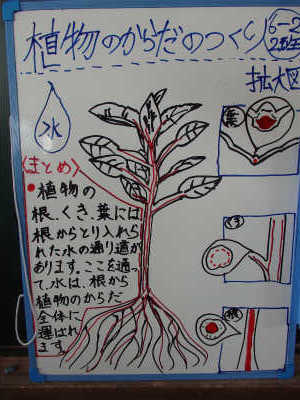 植物のからだのつくり
6-2
拡大図
水
葉
〈まとめ〉
●植物の
根、くき、葉には
根からとり入れら
れた水の通り道が
あります。ここを通っ
て、水は、根から
植物のからだ
全体に
運ばれ
ます。
くき
根